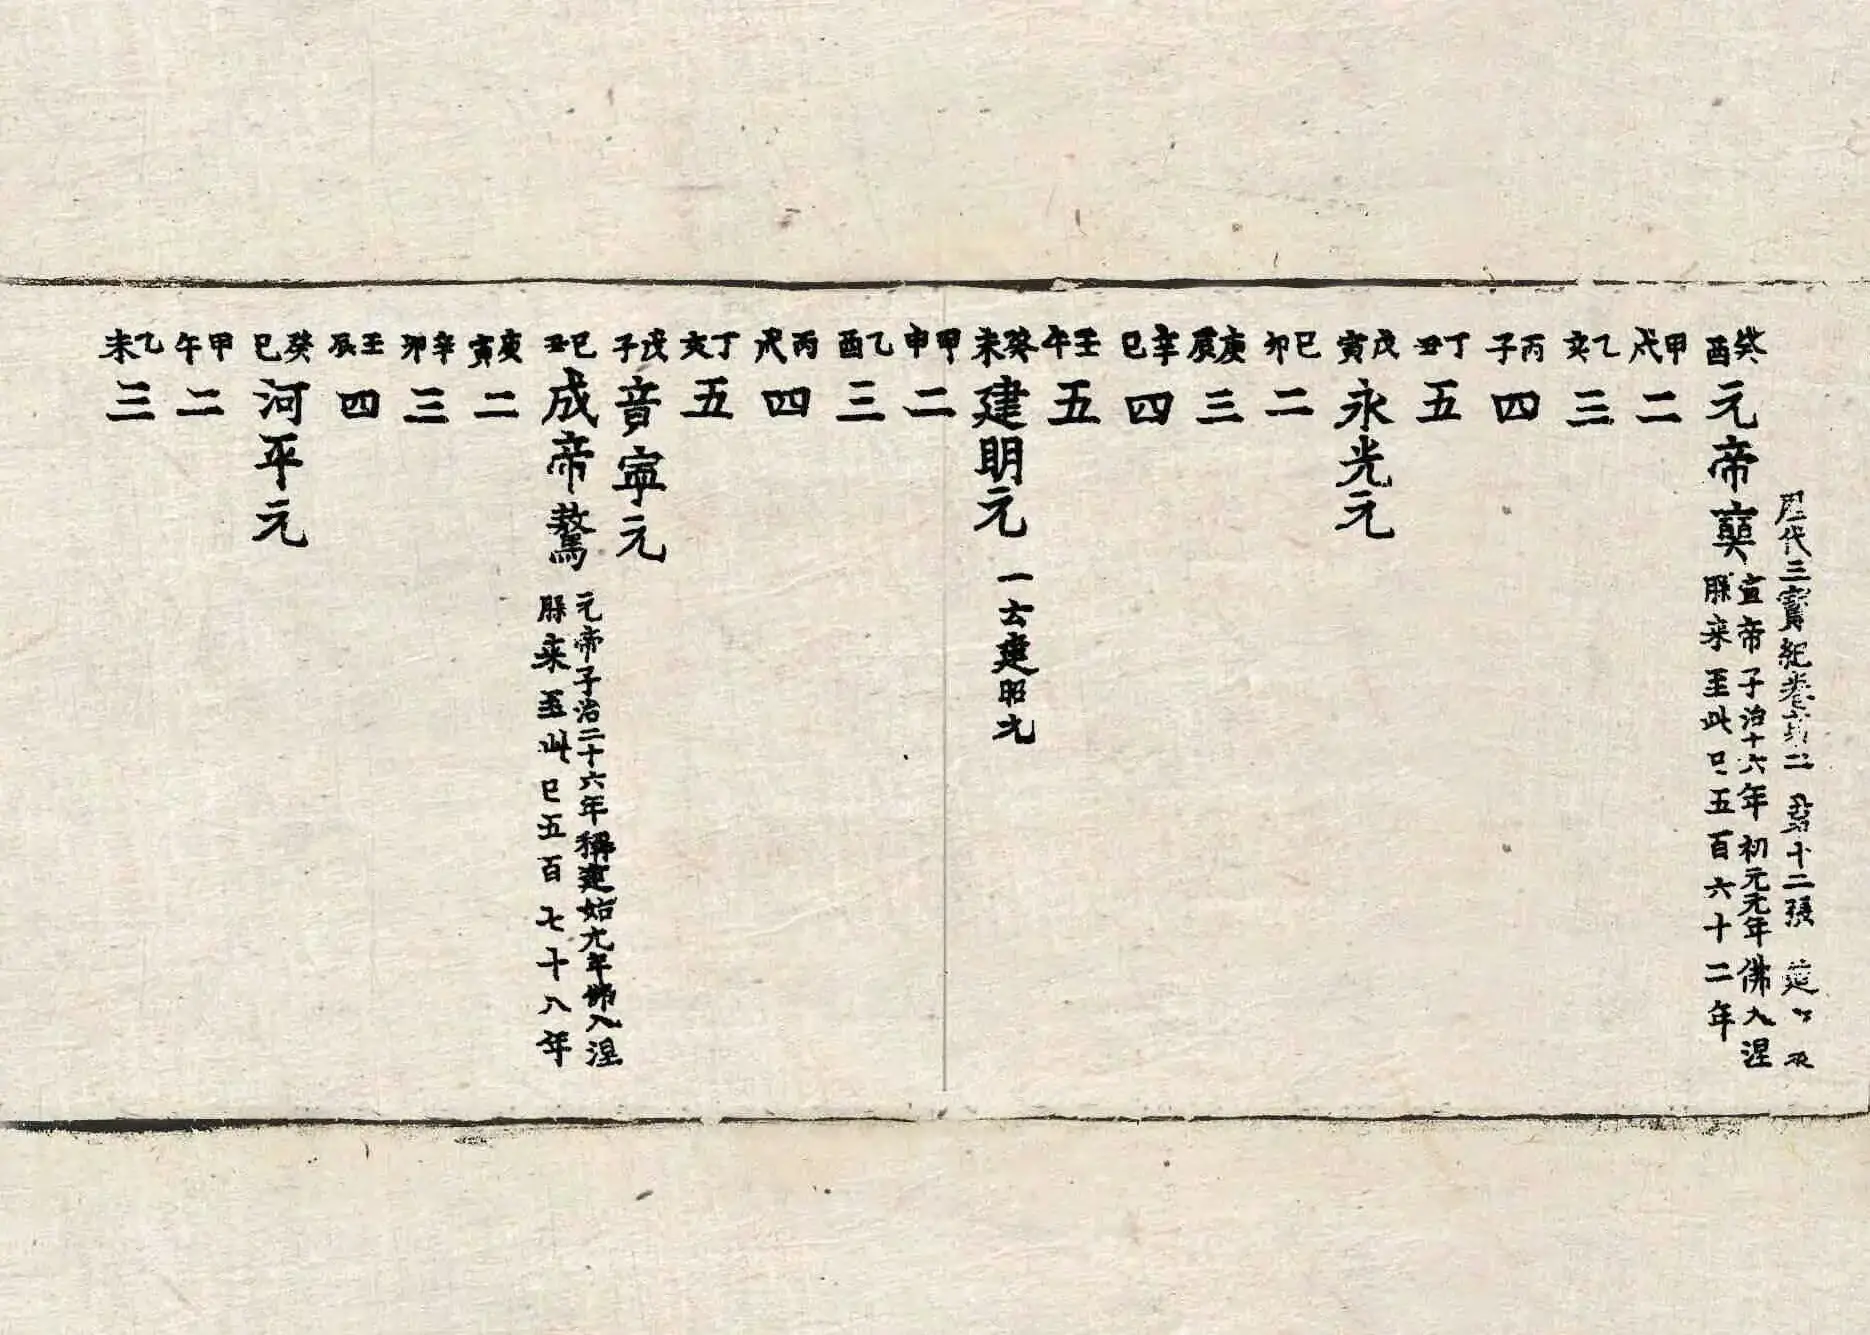 歷代三寶紀卷第二 第十二張
癸酉 元帝奭 宣帝子治十六年初元元年佛入涅
槃来至此已五百六十二年
甲戌 二
乙亥 三
丙子 四
丁丑 五
戊寅 永光元
己卯 二
庚辰 三
辛巳 四
壬午 五
癸未 建明元 一云建昭元
甲申 二
乙酉 三
丙戌 四
丁亥 五
戊子 音寧元
己丑 成帝驁 元帝子治二十六年稱建始元年佛入涅
槃来至此已五百七十八年
庚寅 二
辛卯 三
壬辰 四
癸巳 河平元
甲午 二
乙未 三